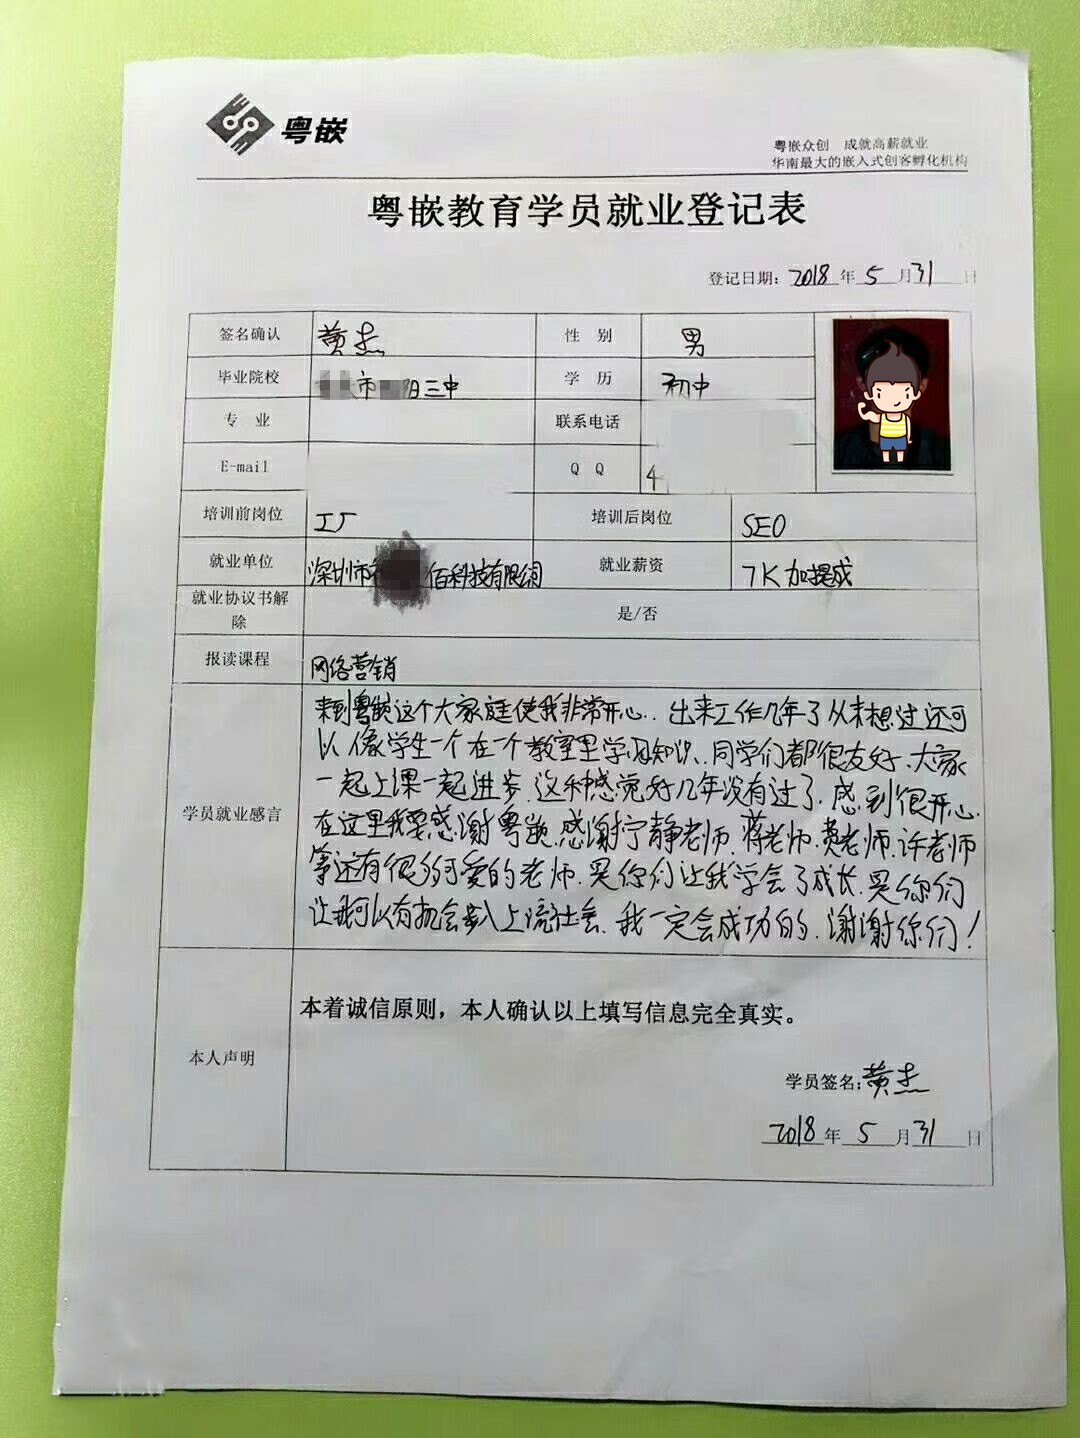 粤嵌
粤嵌众创 成就高薪就业
华南最大的嵌入式创客孵化机构
粤嵌教育学员就业登记表
登记日期：2018年5月31日
签名确认 黄杰 性 别 男
毕业院校 市 阳三中 学 历 初中
专 业 联系电话
E-mail Q Q 4
培训前岗位 工厂 培训后岗位 SEO
就业单位 深圳市 佰科技有限公司 就业薪资 7K加提成
就业协议书解除 是/否
报读课程 网络营销
学员就业感言
来到粤嵌这个大家庭使我非常开心．出来工作几年了从未想过还可
以像学生一个在一个教室里学习知识．同学们都很友好．大家
一起上课一起进步．这种感觉好几年没有过了．感到很开心．
在这里我要感谢粤嵌．感谢宁静老师．蒋老师．黄老师．许老师
等还有很多可爱的老师．是你们让我学会了成长．是你们
让我可以有机会步入上流社会．我一定会成功的．谢谢你们！
本人声明
本着诚信原则，本人确认以上填写信息完全真实。
学员签名：黄杰
2018年5月31日